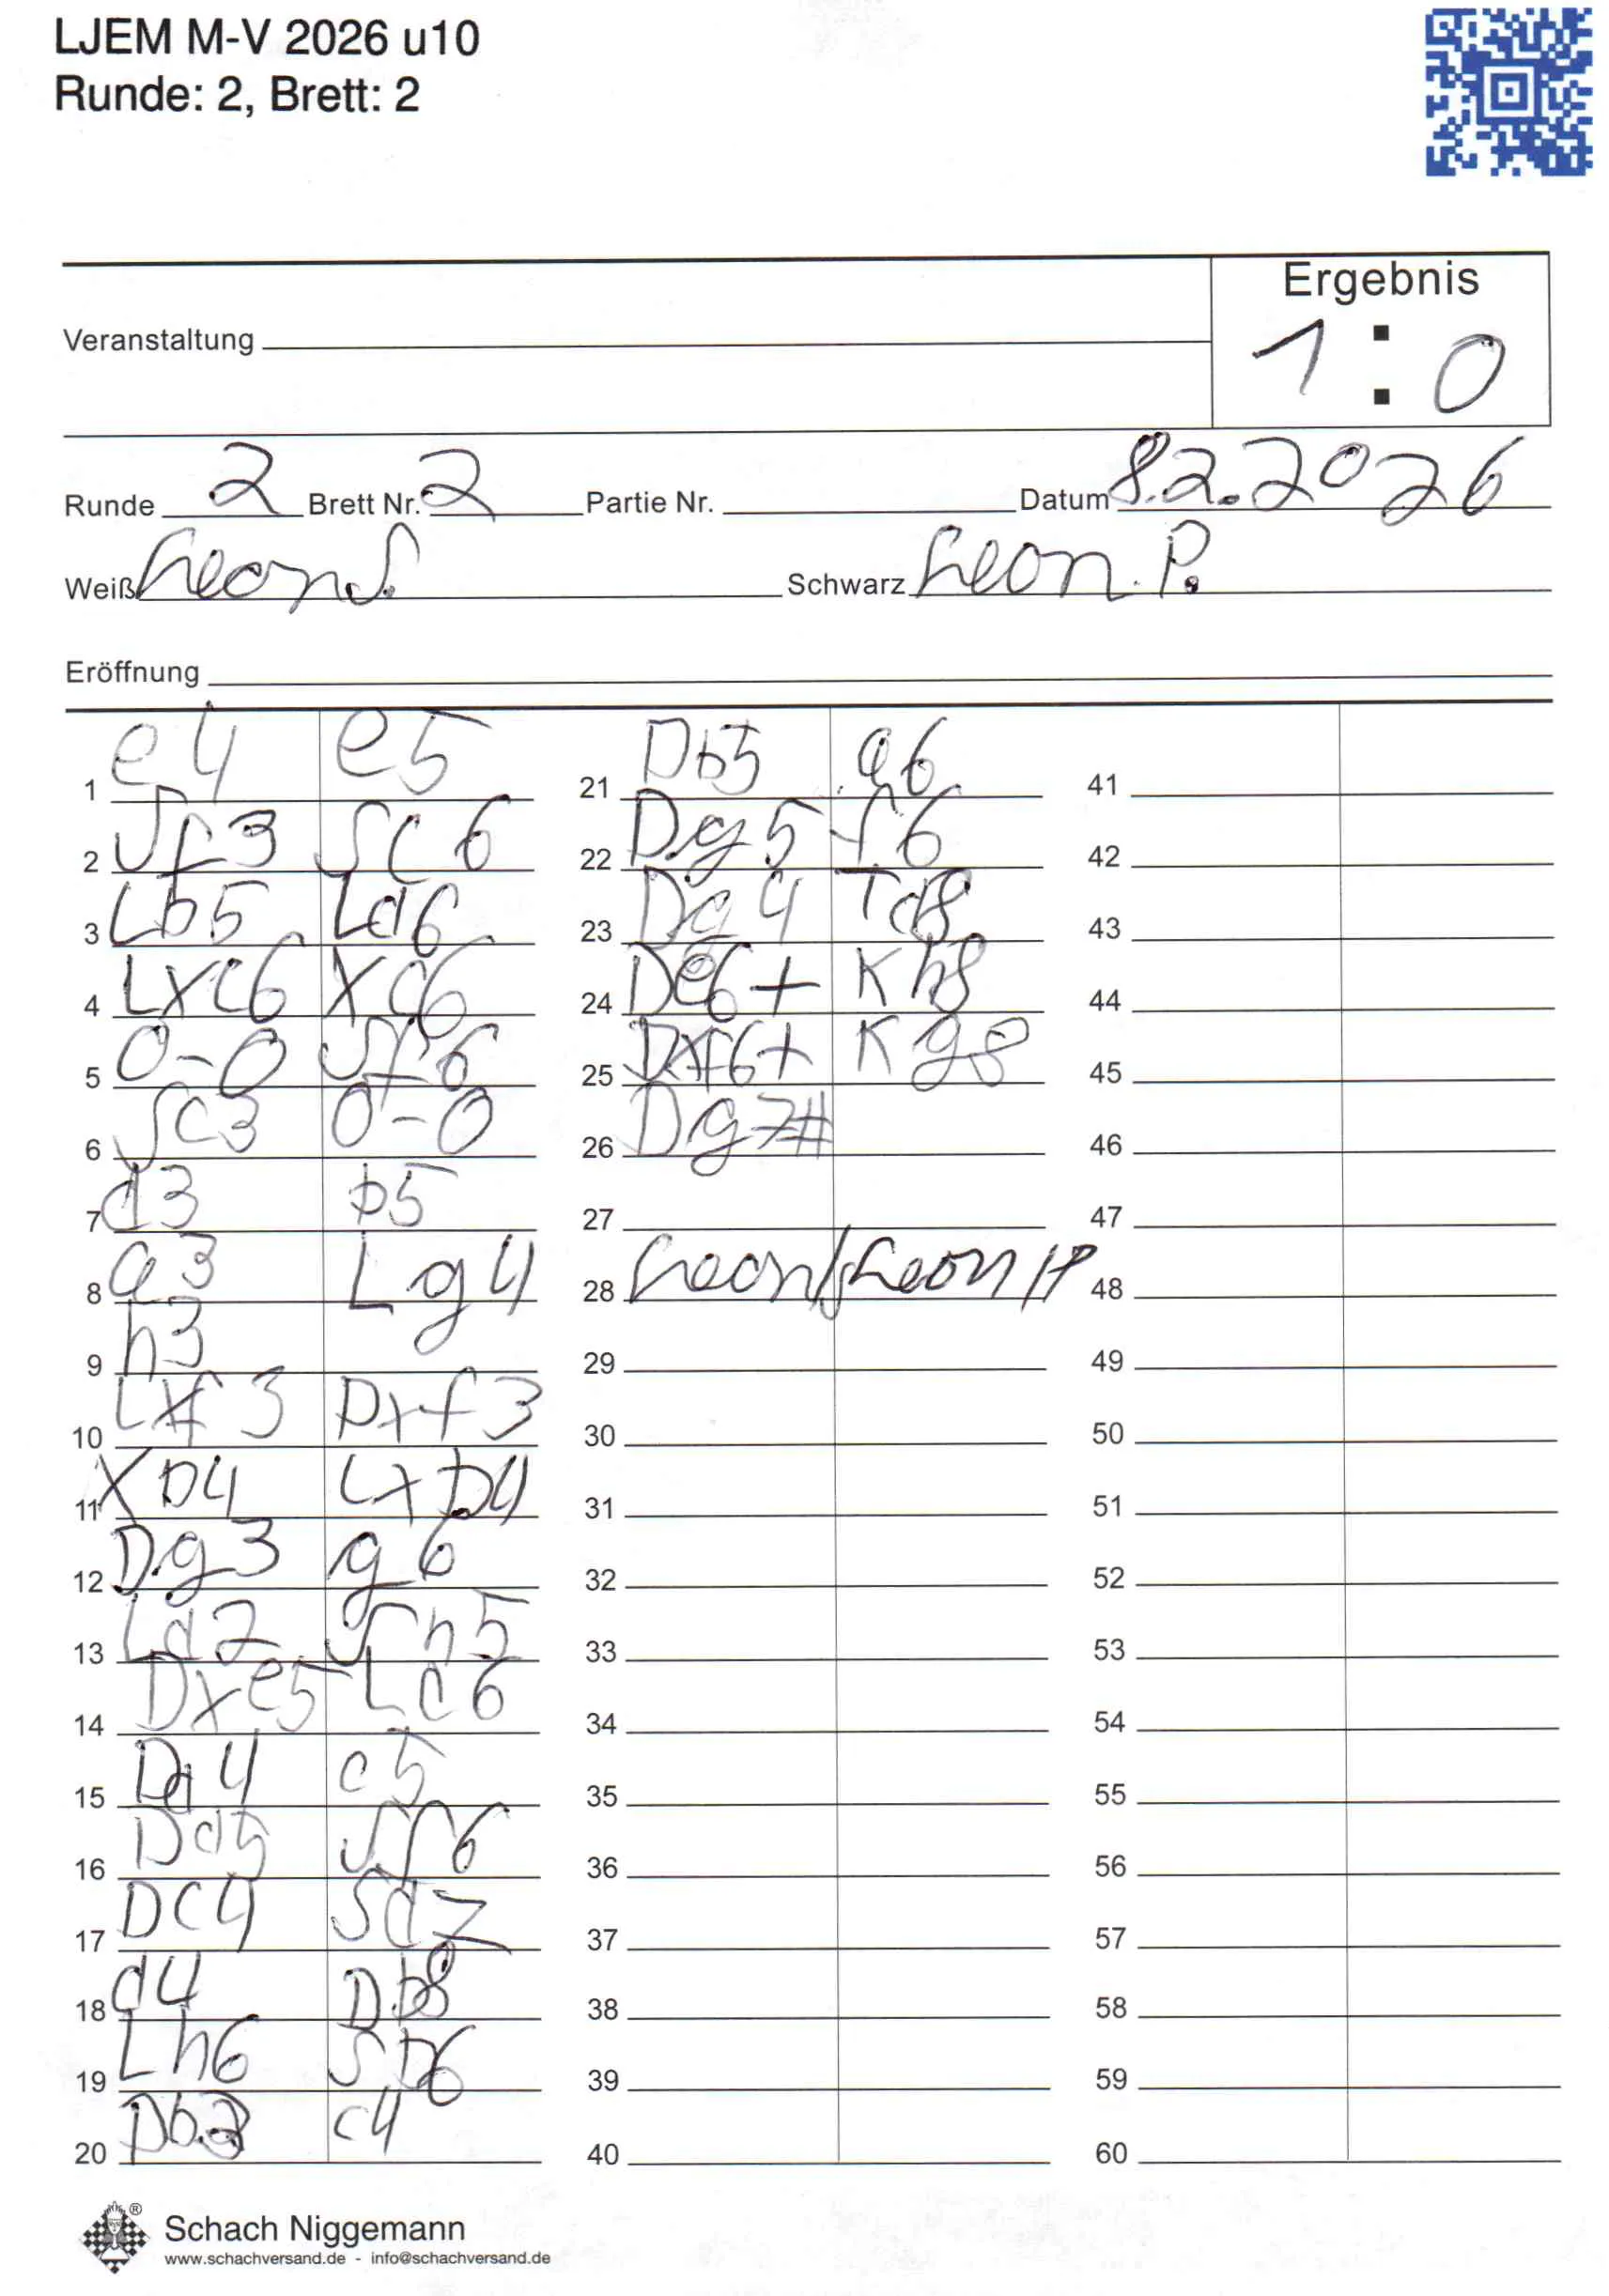 LJEM M-V 2026 u10
Runde: 2, Brett: 2
Ergebnis
1 : 0
Veranstaltung
Runde 2 Brett Nr. 2 Partie Nr. Datum 8.2.2026
Weiß Leon S. Schwarz Leon P.
Eröffnung
1 e4 e5 21 Db5 a6 41
2 Sf3 Sc6 22 Dg5 f6 42
3 Lb5 Ld6 23 Dg4 Td8 43
4 Lxc6 xc6 24 De6+ Kh8 44
5 0-0 Sf6 25 Dxf6+ Kg8 45
6 Sc3 0-0 26 Dg7# 46
7 d3 b5 27 47
8 a3 Lg4 28 Leon/S Leon/P 48
9 h3 29 49
10 Lxf3 Dxf3 30 50
11 xb4 Lxb4 31 51
12 Dg3 g6 32 52
13 Ld2 Sh5 33 53
14 Dxe5 Ld6 34 54
15 Dd4 c5 35 55
16 Dd5 Sf6 36 56
17 Dc4 Sd7 37 57
18 d4 Db8 38 58
19 Lh6 Sb6 39 59
20 Db3 c4 40 60
®
Schach Niggemann
www.schachversand.de - info@schachversand.de